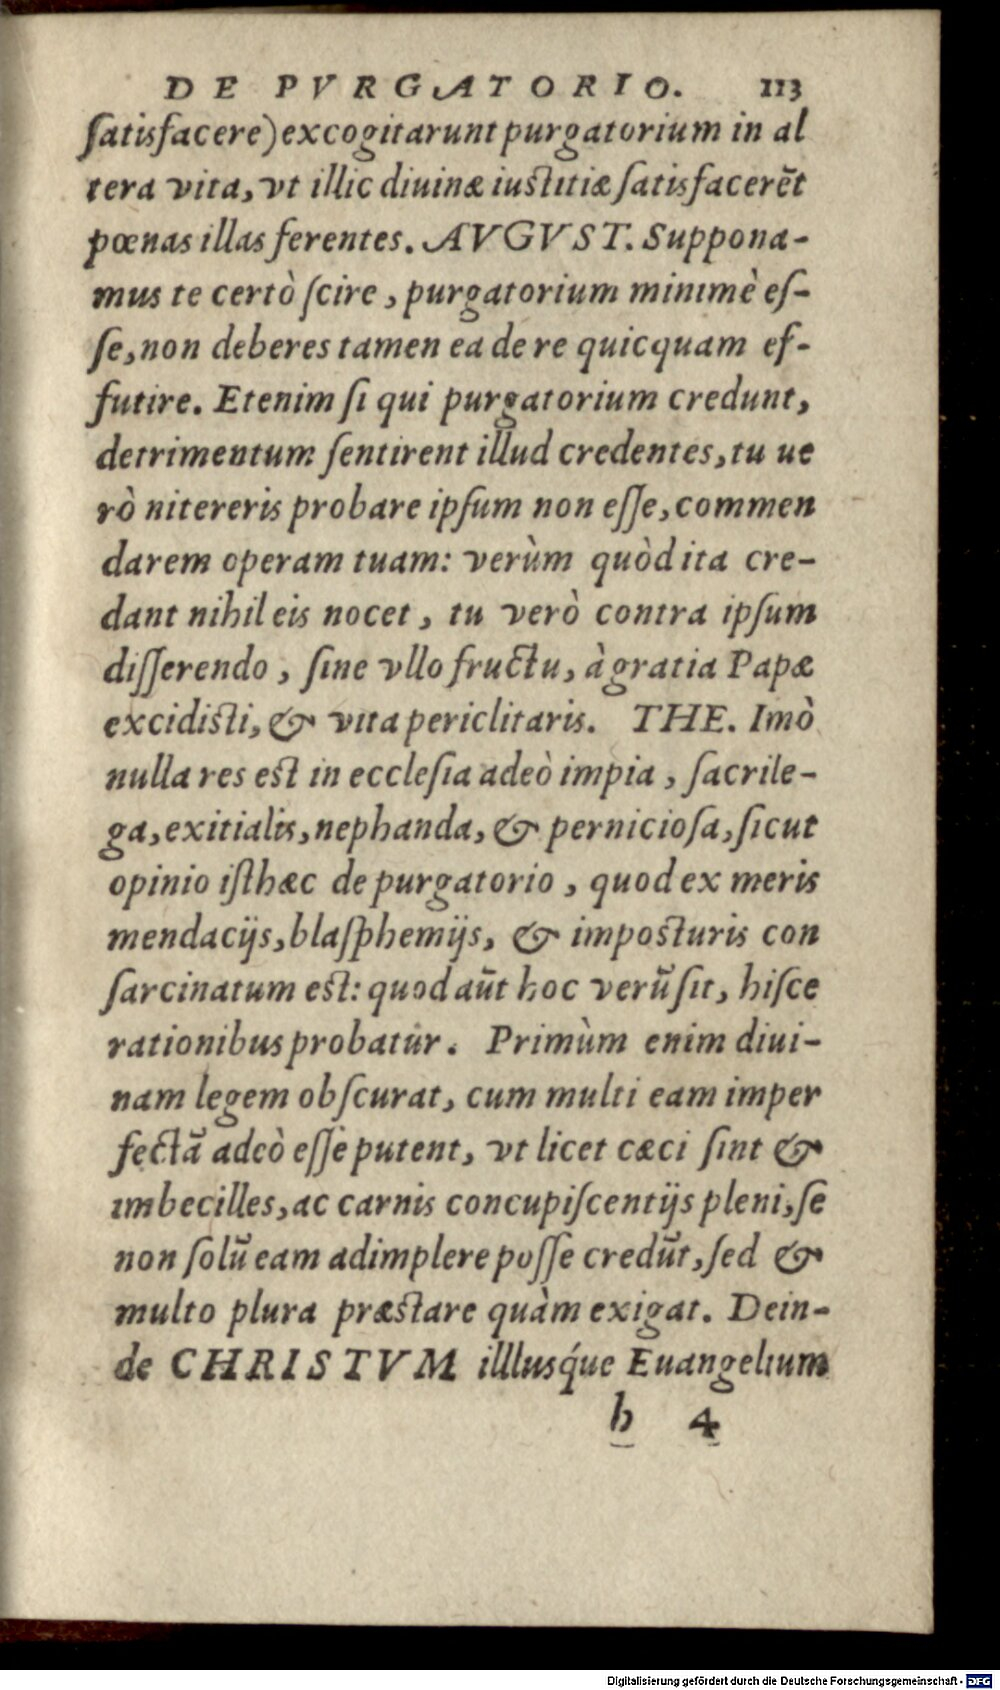 DE PVRGATORIO. 113
ſatisfacere) excogitarunt purgatorium in al
tera vita, vt illic diuinæ iustitiæ ſatisfacerẽt
pœnas illas ferentes. AVGVST. Suppona-
mus te certò ſcire, purgatorium minimè eſ-
ſe, non deberes tamen ea de re quicquam ef-
futire. Etenim ſi qui purgatorium credunt,
detrimentum ſentirent illud credentes, tu ue
rò nitereris probare ipſum non eſſe, commen
darem operam tuam: verùm quòd ita cre-
dant nihil eis nocet, tu verò contra ipſum
diſſerendo, ſine vllo fructu, à gratia Papæ
excidisti, & vita periclitaris. THE. Imò
nulla res est in eccleſia adeò impia, ſacrile-
ga, exitialis, nephanda, & pernicioſa, ſicut
opinio iſthæc de purgatorio, quod ex meris
mendacijs, blaſphemijs, & imposturis con
ſarcinatum est: quod aũt hoc verũ ſit, hiſce
rationibus probatur. Primùm enim diui-
nam legem obſcurat, cum multi eam imper
fectã adeò eſſe putent, vt licet cæci ſint &
imbecilles, ac carnis concupiſcentijs pleni, ſe
non ſolũ eam adimplere poſſe credũt, ſed &
multo plura præstare quàm exigat. Dein-
de CHRISTVM illlusq́ue Euangelium
h 4
Digitalisierung gefördert durch die Deutsche Forschungsgemeinschaft - DFG